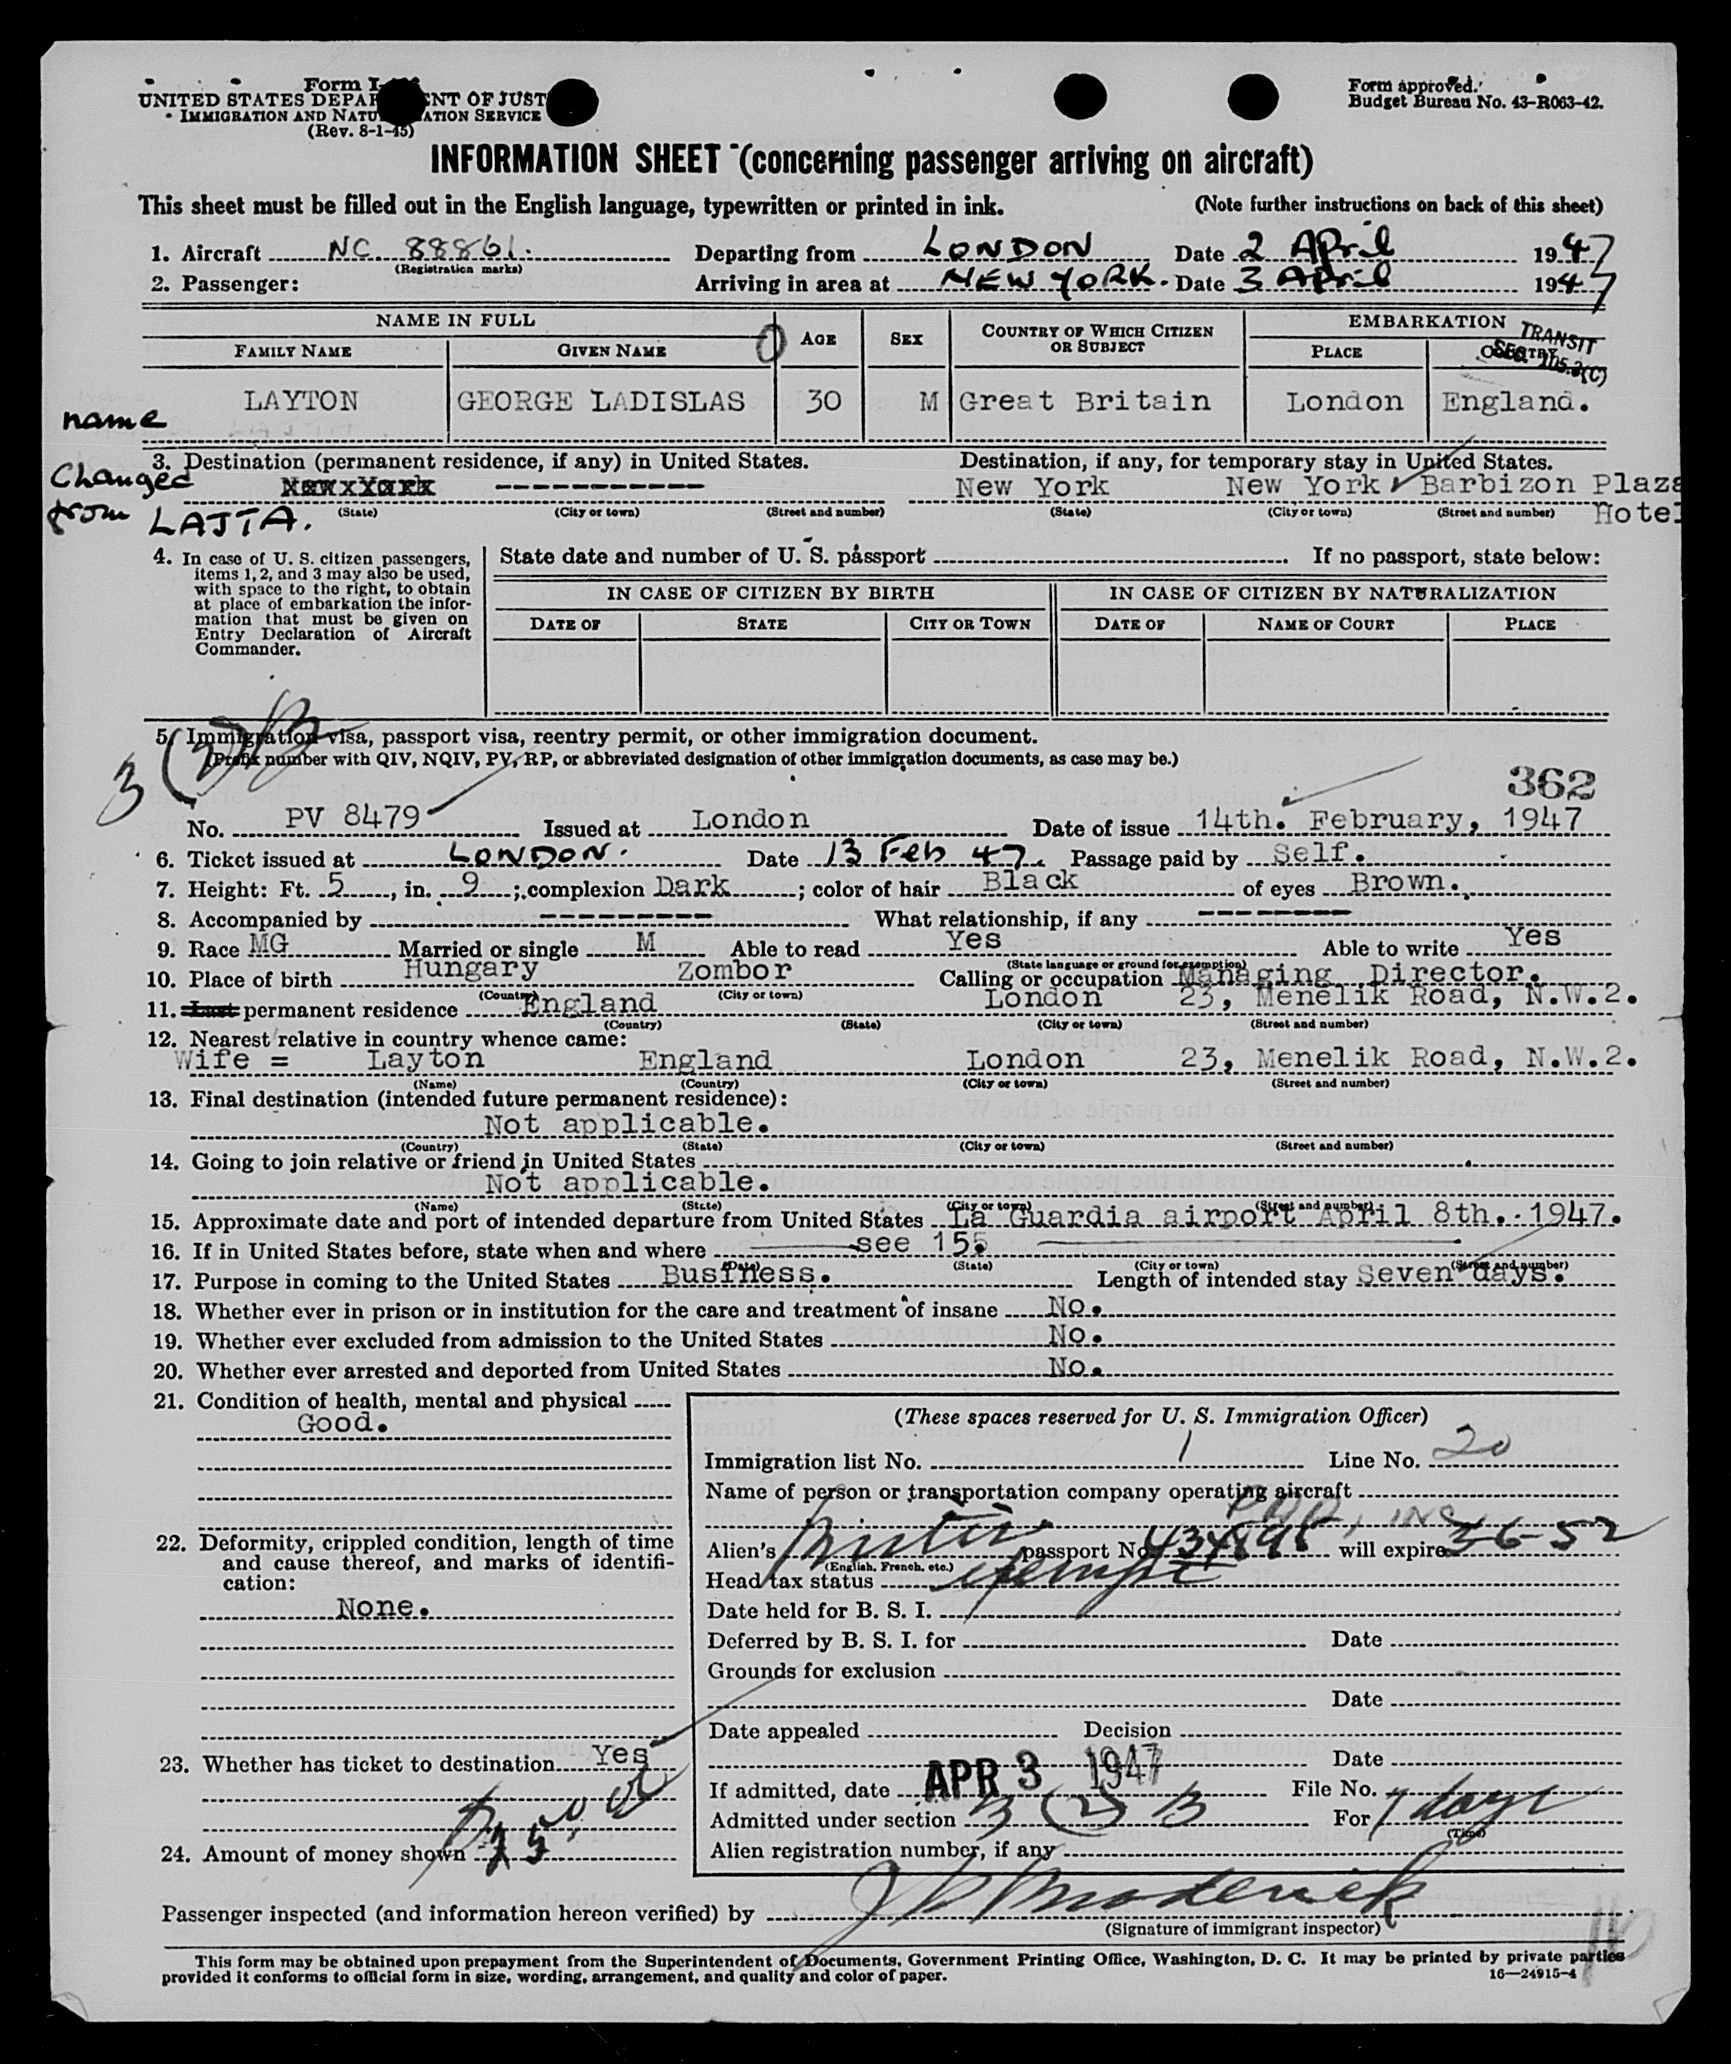 Form I-
UNITED STATES DEPA NT OF JUST
IMMIGRATION AND NATU ATION SERVICE
(Rev. 8-1-45)
Form approved.
Budget Bureau No. 43-R063-42.
INFORMATION SHEET (concerning passenger arriving on aircraft)
This sheet must be filled out in the English language, typewritten or printed in ink. (Note further instructions on back of this sheet)
1. Aircraft NC 88861. Departing from LONDON Date 2 April 1947
(Registration marks)
2. Passenger: Arriving in area at NEW YORK. Date 3 April 1947
NAME IN FULL AGE SEX COUNTRY OF WHICH CITIZEN OR SUBJECT EMBARKATION
FAMILY NAME GIVEN NAME PLACE
TRANSIT
SEC. 105.3(C)
LAYTON GEORGE LADISLAS 30 M Great Britain London England.
name
Changed
from LAJTA.
3. Destination (permanent residence, if any) in United States. Destination, if any, for temporary stay in United States.
New York ----------- New York New York Barbizon Plaza
Hotel
(State) (City or town) (Street and number) (State) (City or town) (Street and number)
4. In case of U. S. citizen passengers,
items 1, 2, and 3 may also be used,
with space to the right, to obtain
at place of embarkation the infor-
mation that must be given on
Entry Declaration of Aircraft
Commander.
State date and number of U. S. passport If no passport, state below:
IN CASE OF CITIZEN BY BIRTH IN CASE OF CITIZEN BY NATURALIZATION
DATE OF STATE CITY OR TOWN DATE OF NAME OF COURT PLACE
3 (2) B
5. Immigration visa, passport visa, reentry permit, or other immigration document.
(Prefix number with QIV, NQIV, PV, RP, or abbreviated designation of other immigration documents, as case may be.)
362
No. PV 8479 Issued at London Date of issue 14th. February, 1947
6. Ticket issued at LONDON. Date 13 Feb 47. Passage paid by Self.
7. Height: Ft. 5, in. 9; complexion Dark; color of hair Black of eyes Brown.
8. Accompanied by ---------- What relationship, if any ---------
9. Race MG Married or single M Able to read Yes Able to write Yes
(State language or ground for exemption)
10. Place of birth Hungary Zombor Calling or occupation Managing Director.
(Country) (City or town)
11. Last permanent residence England London 23, Menelik Road, N.W.2.
(Country) (State) (City or town) (Street and number)
12. Nearest relative in country whence came:
Wife = Layton England London 23, Menelik Road, N.W.2.
(Name) (Country) (City or town) (Street and number)
13. Final destination (intended future permanent residence):
Not applicable.
(Country) (State) (City or town) (Street and number)
14. Going to join relative or friend in United States
Not applicable.
(Name) (State) (City or town) (Street and number)
15. Approximate date and port of intended departure from United States La Guardia airport April 8th. 1947.
16. If in United States before, state when and where see 15.
(Date) (State) (City or town) (Street and number)
17. Purpose in coming to the United States Business. Length of intended stay Seven days.
18. Whether ever in prison or in institution for the care and treatment of insane No.
19. Whether ever excluded from admission to the United States No.
20. Whether ever arrested and deported from United States No.
21. Condition of health, mental and physical
Good.
22. Deformity, crippled condition, length of time
and cause thereof, and marks of identifi-
cation:
None.
23. Whether has ticket to destination Yes
24. Amount of money shown
(These spaces reserved for U. S. Immigration Officer)
Immigration list No. 1 Line No. 20
Name of person or transportation company operating aircraft
INC
Alien's passport No. 434898 will expire 3-6-52
(English, French, etc.)
Head tax status exempt
Date held for B. S. I.
Deferred by B. S. I. for Date
Grounds for exclusion
Date
Date appealed Decision
Date
If admitted, date APR 3 1947 File No.
Admitted under section 3 (2) B For 7 days
(Time)
Alien registration number, if any
Passenger inspected (and information hereon verified) by
(Signature of immigrant inspector)
This form may be obtained upon prepayment from the Superintendent of Documents, Government Printing Office, Washington, D. C. It may be printed by private parties
provided it conforms to official form in size, wording, arrangement, and quality and color of paper. 16—24915-4